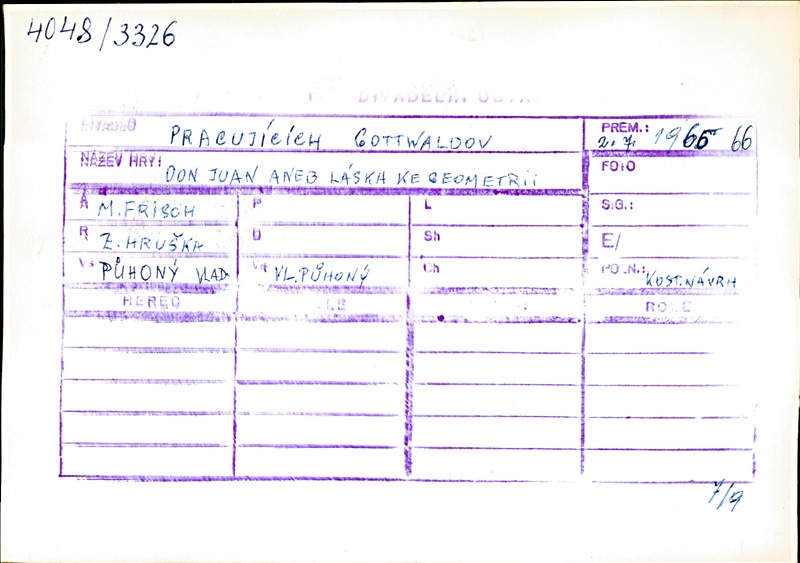 4048/3326
DIVADLO PRACUJÍCÍCH GOTTWALDOV PREM.: 2. 7. 1965 66
NÁZEV HRY: DON JUAN ANEB LÁSKA KE GEOMETRII FOTO
A M. FRISCH P L SIG.:
R Z. HRUŠKA D Sh E/
PŮHONÝ VLAD VL. PŮHONÝ Ch POZN.: KOST. NÁVRH
HEREC ROLE
7/9